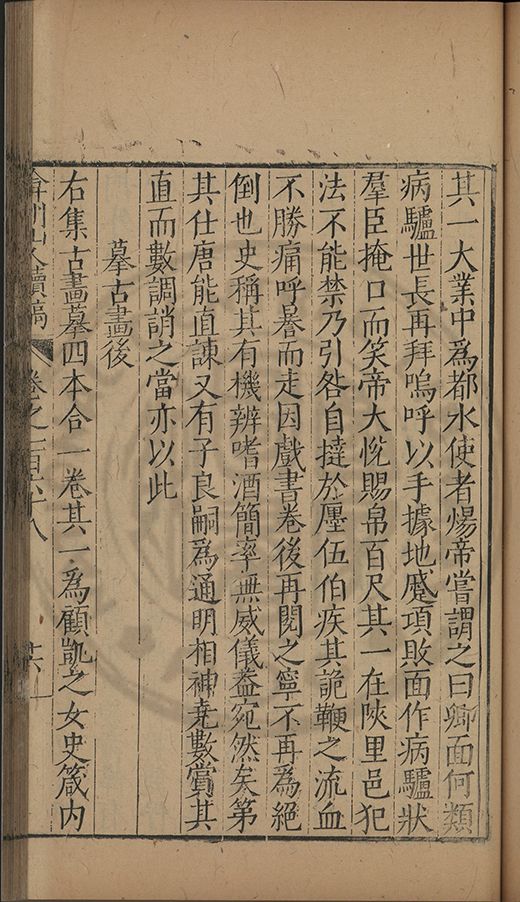 其一大業中爲都水使者煬帝嘗謂之曰卿面何類
病驢世長再拜嗚呼以手據地蹙項敗面作病驢狀
羣臣掩口而笑帝大悅賜帛百尺其一在陝里邑犯
法不能禁乃引咎自撻於廛伍伯疾其詭鞭之流血
不勝痛呼暴而走因戲書卷後再閱之寧不再爲絕
倒也史稱其有機辨嗜酒簡率無威儀葢宛然矣第
其仕唐能直諫又有子良嗣爲通明相神堯數賞其
直而數調誚之當亦以此
摹古畫後
右集古畫摹四本合一卷其一爲顧凱之女史箴内
弇州山人續稿
卷之一百六十八